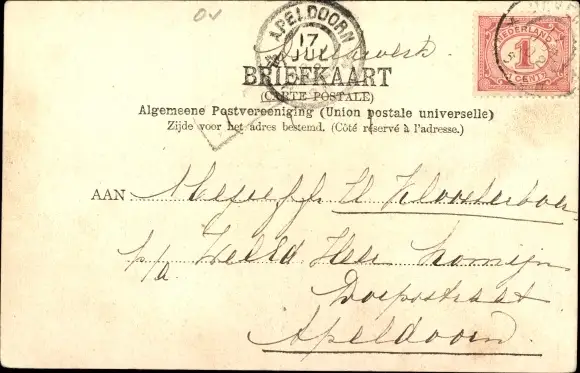 OV
APELDOORN
17
JUL
Drukwerk
NEDERLAND
1
CENT
BRIEFKAART
(CARTE POSTALE)
Algemeene Postvereeniging (Union postale universelle)
Zijde voor het adres bestemd. (Côté réservé à l'adresse.)
AAN Mejuffr. U Kloosterboer
p/a Weled Heer Romijn
Dorpstraat
Apeldoorn.